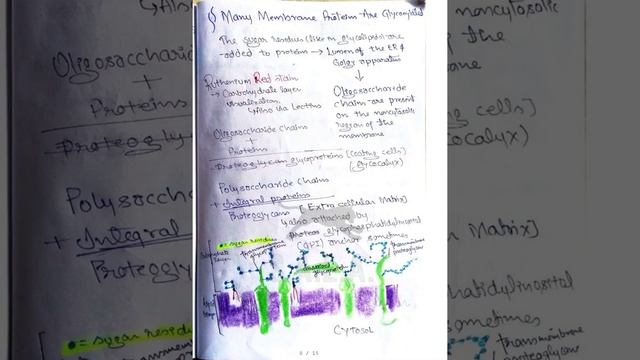 § Many Membrane Proteins Are Glycosylated
The sugar residues (like in glycolipids) are
added to protein → Lumen of the ER &
Golgi apparatus
Ruthenium Red stain
→ Carbohydrate layer
visualization
↳ Also via Lectins
Oligosaccharide
chains are present
on the noncytosolic
region of the
membrane
Oligosaccharide chains
+
Proteins
Proteoglycan glycoproteins [coating cells]
(Glycocalyx)
Polysaccharide chains
+ Integral proteins
Proteoglycans [Extra cellular Matrix]
↳ also attached by
glycosylphosphatidylinositol
(GPI) anchor sometimes
= sugar residue
transmembrane
glycoprotein
adsorbed
glycoprotein
transmembrane
proteoglycan
Cytosol
8 / 15